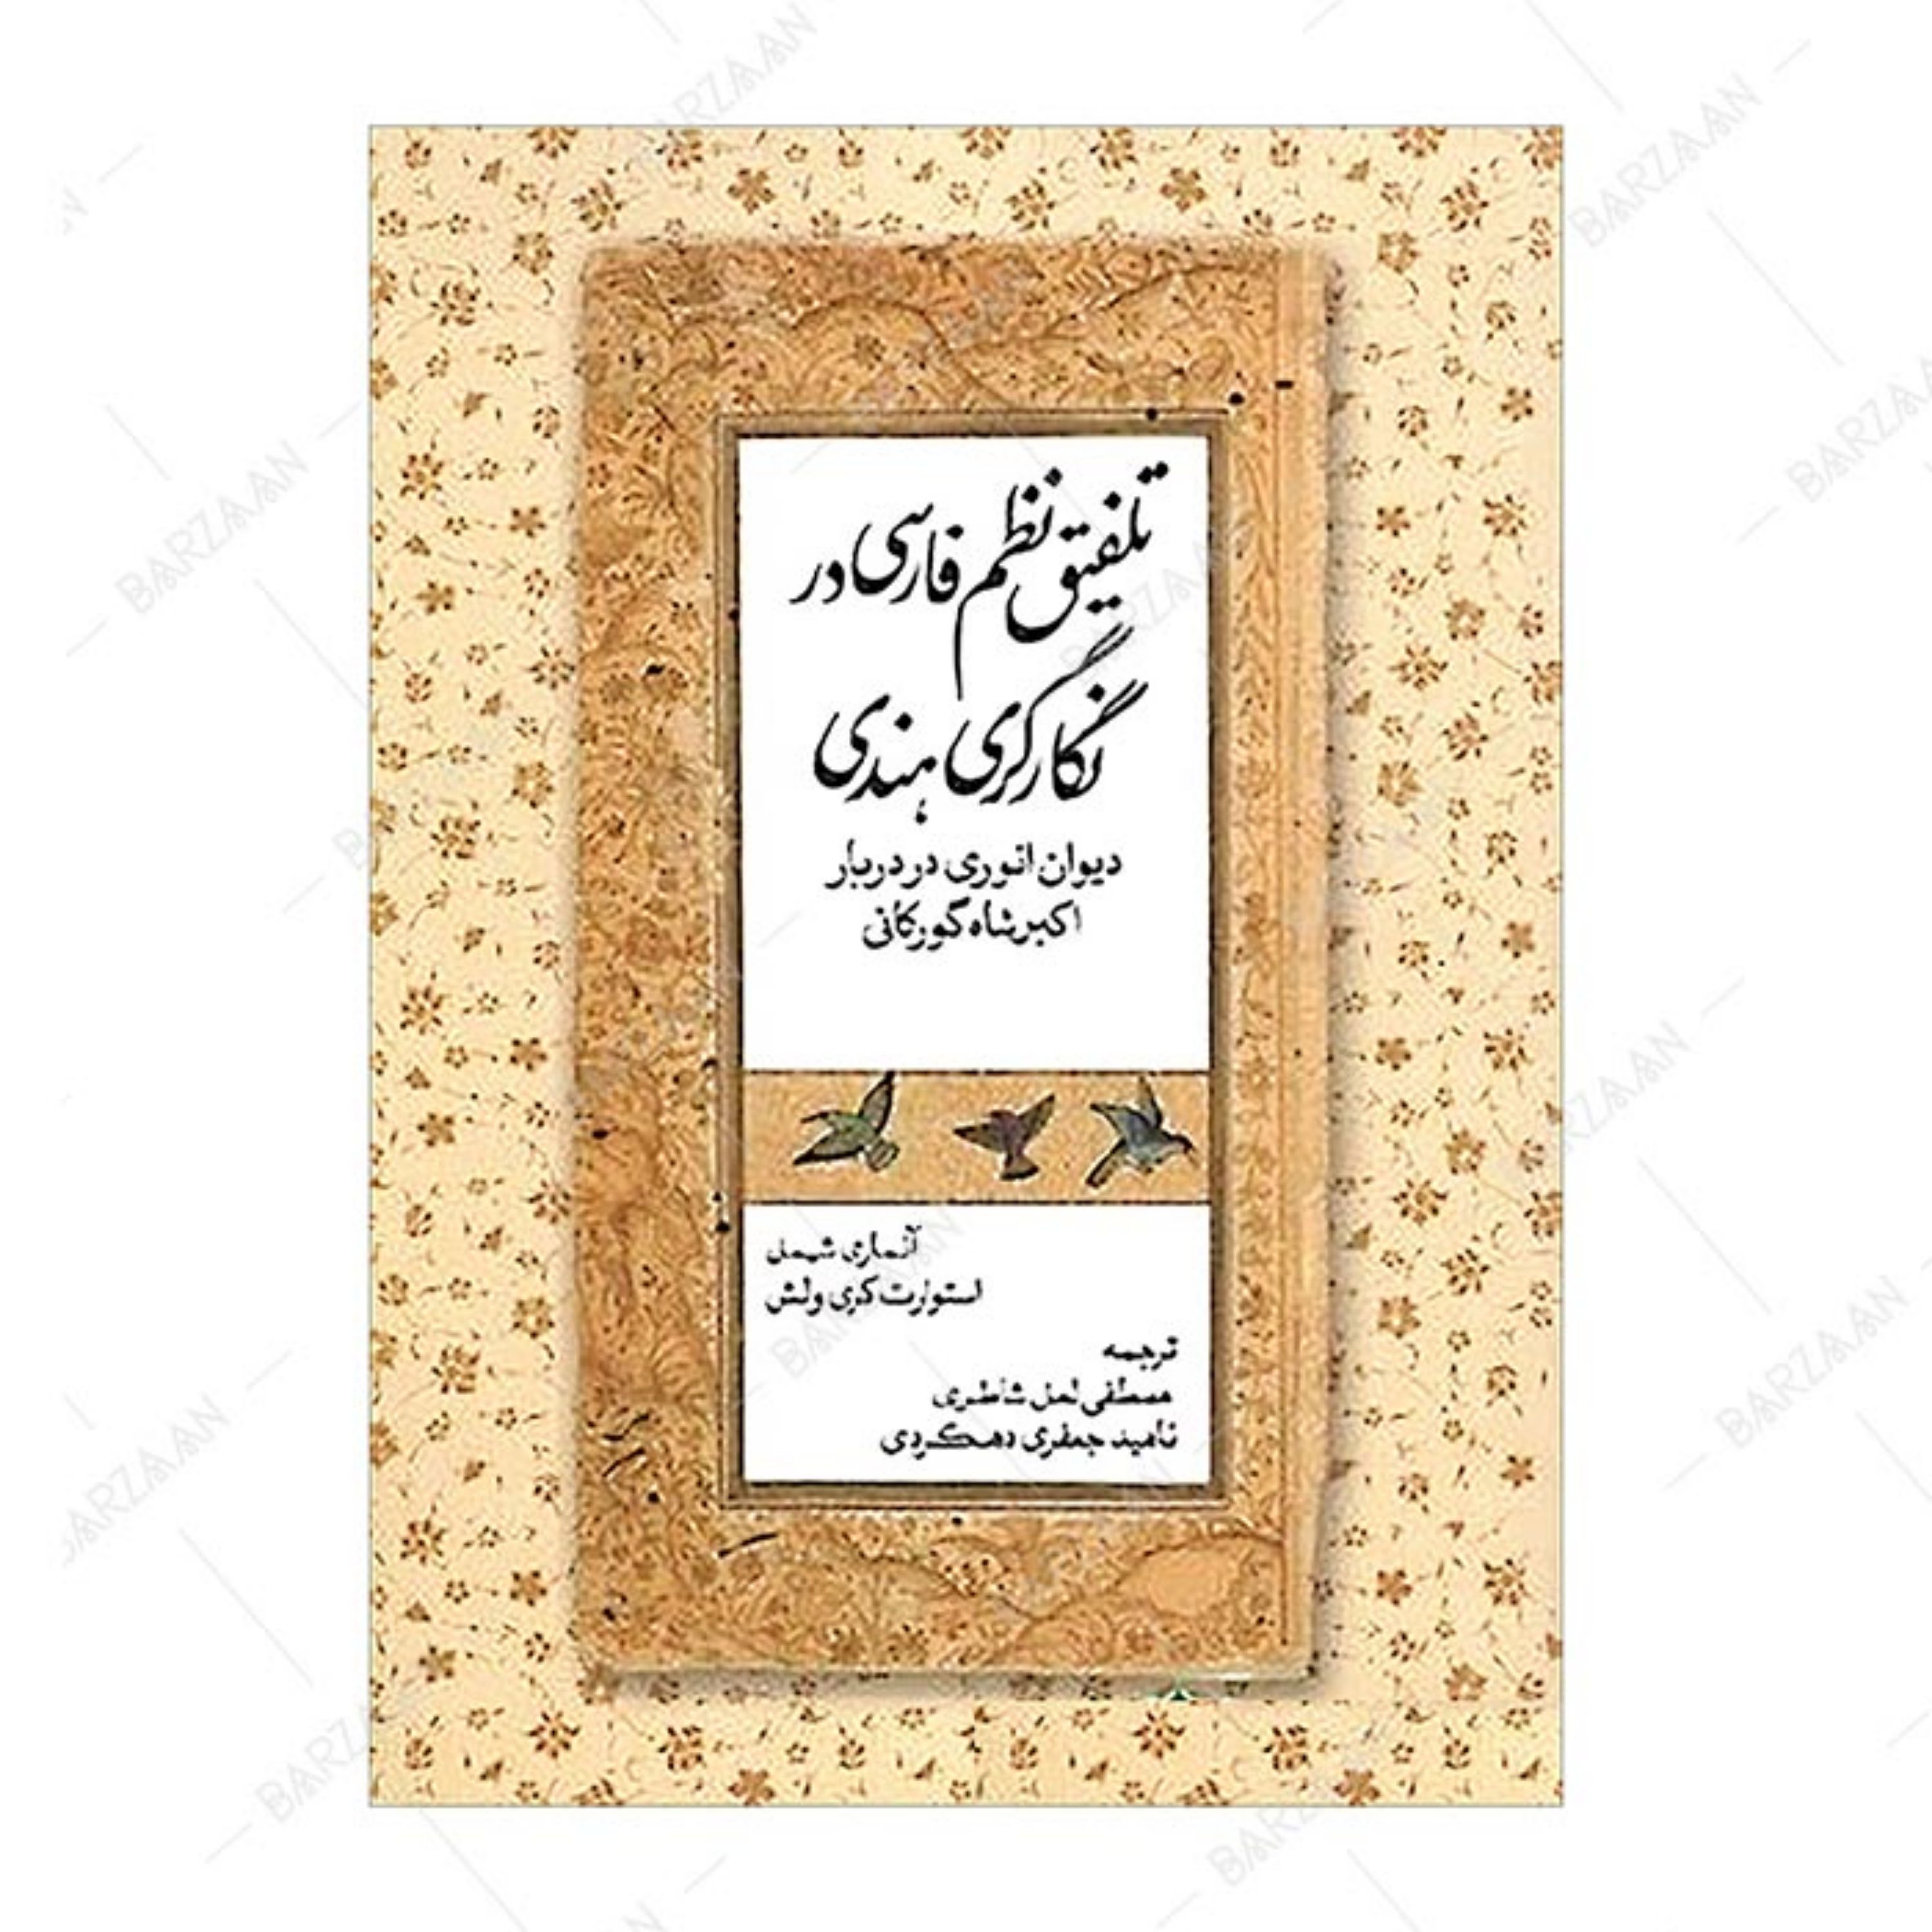 تلفیق نظم فارسی در
نگارگری هندی
دیوان انوری در دربار
اکبرشاه گورکانی
آنماری شیمل
استوارت کری ولش
ترجمه
مصطفی لعل شاطری
ناهید جعفری دهکردی
BARZAAN